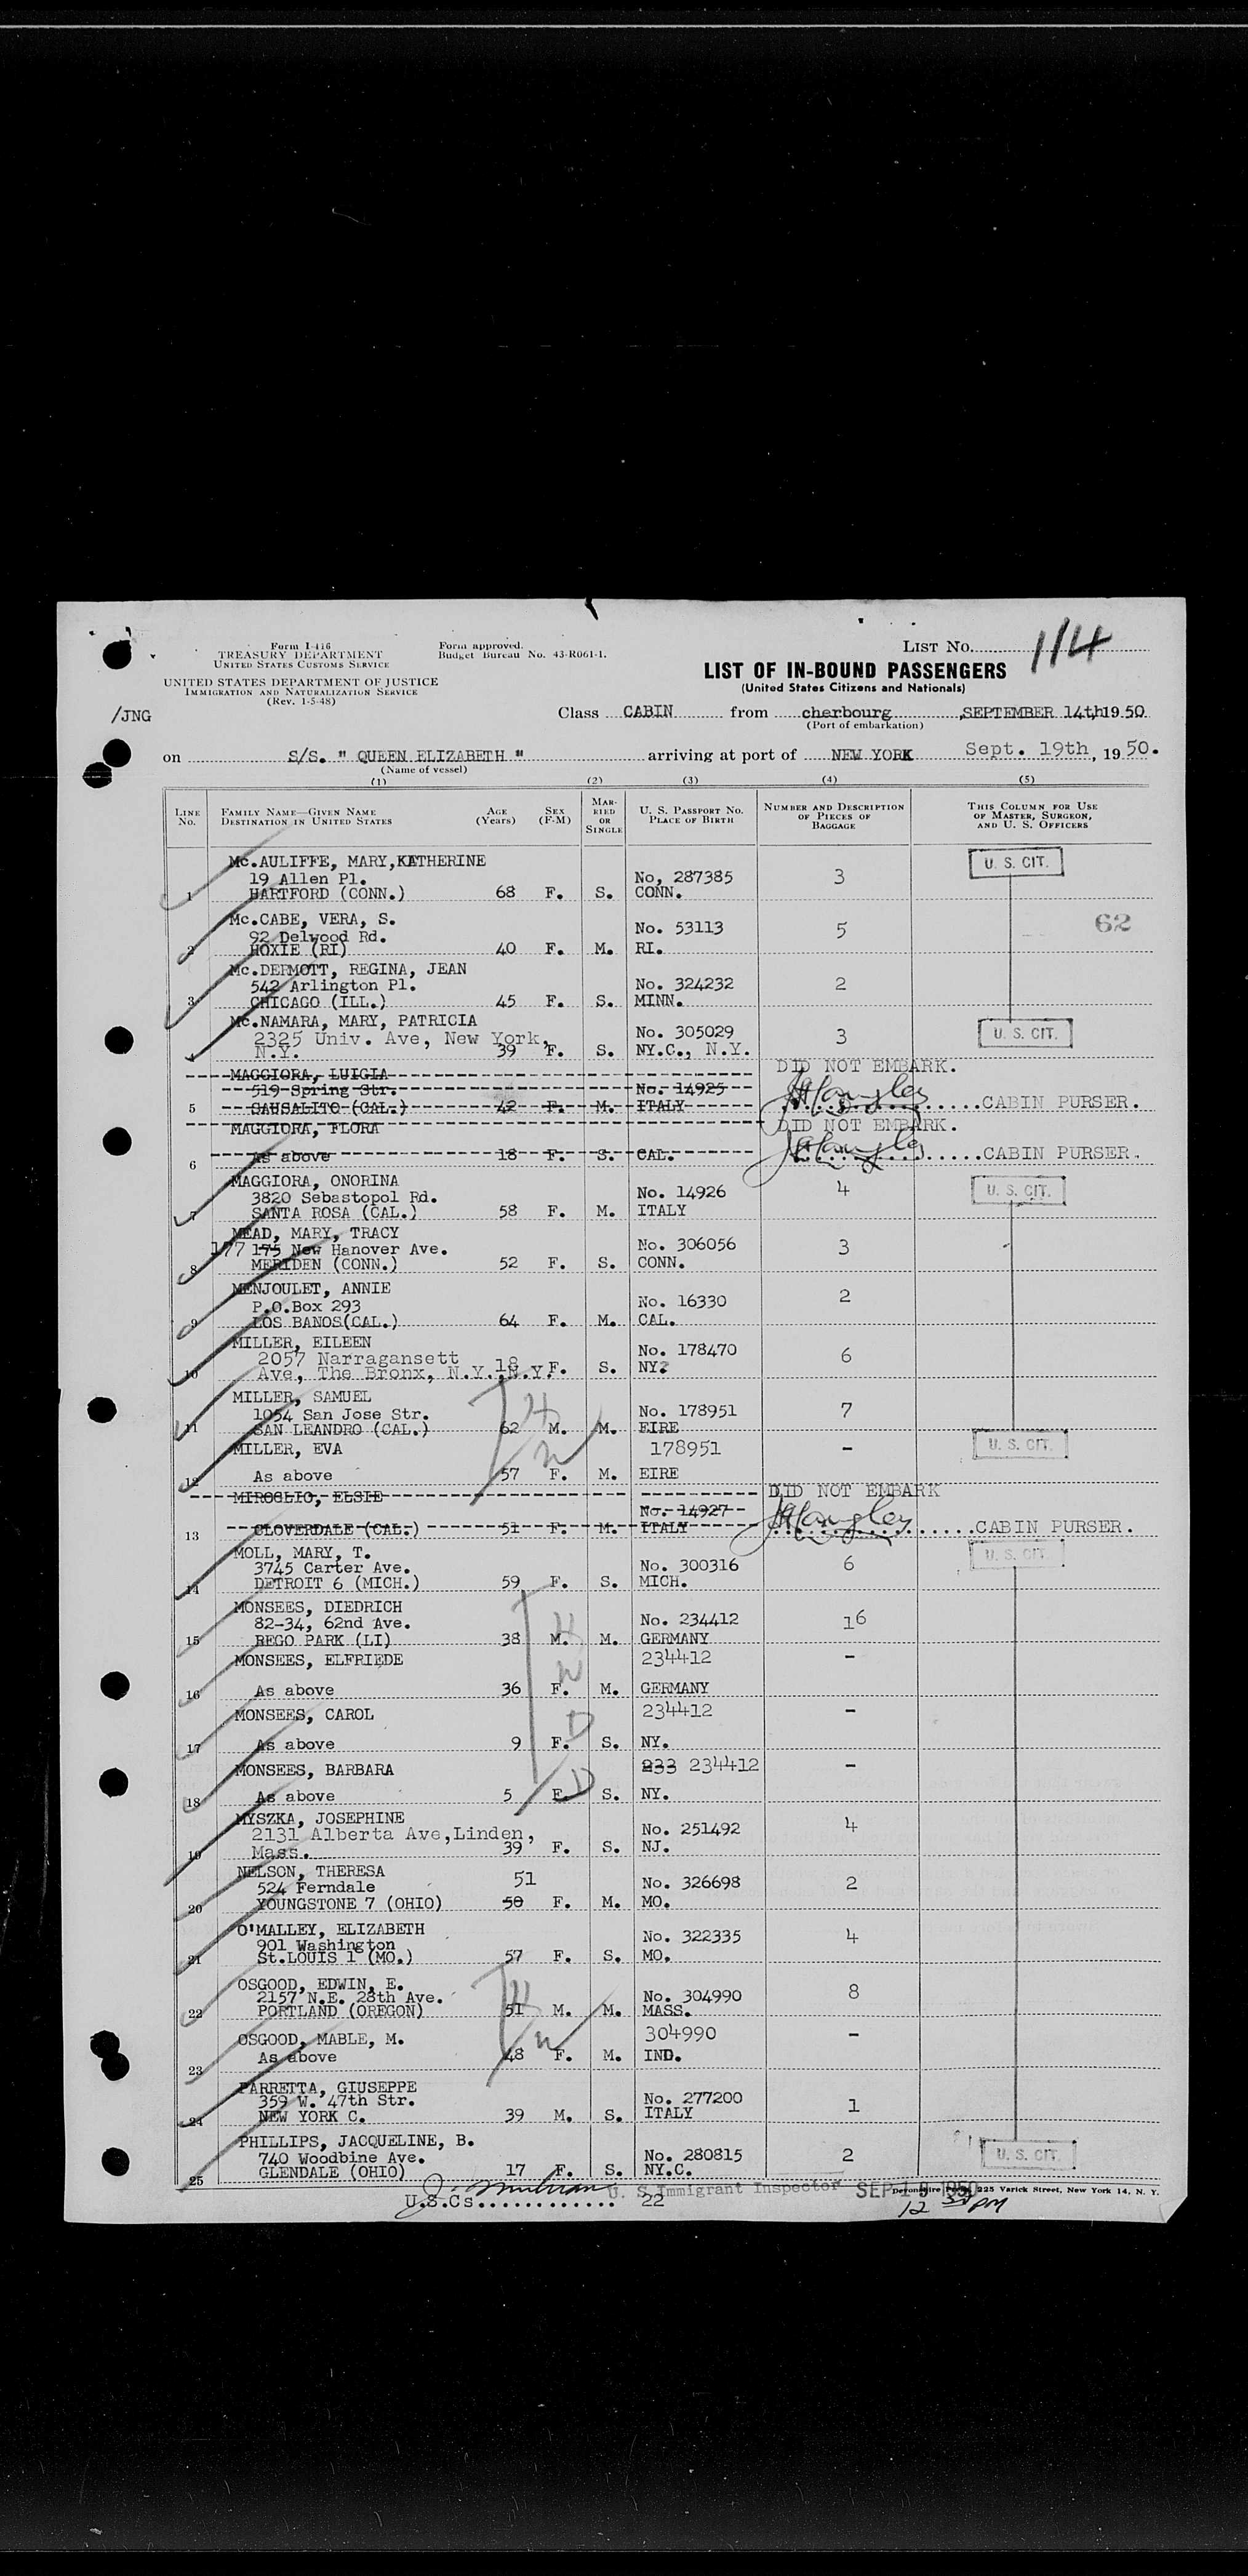 Form I-416
TREASURY DEPARTMENT
UNITED STATES CUSTOMS SERVICE
Form approved.
Budget Bureau No. 43-R061-1.
LIST NO. 114
UNITED STATES DEPARTMENT OF JUSTICE
IMMIGRATION AND NATURALIZATION SERVICE
(Rev. 1-5-48)
LIST OF IN-BOUND PASSENGERS
(United States Citizens and Nationals)
/JNG
Class CABIN from cherbourg ,SEPTEMBER 14th,1950
(Port of embarkation)
on S/S. " QUEEN ELIZABETH " arriving at port of NEW YORK Sept. 19th, 1950.
(Name of vessel)
(1) (2) (3) (4) (5)
LINE NO. FAMILY NAME—GIVEN NAME DESTINATION IN UNITED STATES AGE (Years) SEX (F-M) MARRIED OR SINGLE U. S. PASSPORT NO. PLACE OF BIRTH NUMBER AND DESCRIPTION OF PIECES OF BAGGAGE THIS COLUMN FOR USE OF MASTER, SURGEON, AND U. S. OFFICERS
Mc.AULIFFE, MARY,KATHERINE U. S. CIT.
19 Allen Pl. No, 287385 3
1 HARTFORD (CONN.) 68 F. S. CONN.
Mc.CABE, VERA, S. No. 53113 5 62
92 Delwood Rd.
2 HOXIE (RI) 40 F. M. RI.
Mc.DERMOTT, REGINA, JEAN
542 Arlington Pl. No. 324232 2
3 CHICAGO (ILL.) 45 F. S. MINN.
Mc.NAMARA, MARY, PATRICIA
2325 Univ. Ave, New York, No. 305029 3 U. S. CIT.
N.Y. 39 F. S. NY.C., N.Y.
MAGGIORA, LUIGIA DID NOT EMBARK.
519 Spring Str. No. 14925
5 SAUSALITO (CAL.) 42 F. M. ITALY CABIN PURSER.
MAGGIORA, FLORA DID NOT EMBARK.
6 As above 18 F. S. CAL. CABIN PURSER.
MAGGIORA, ONORINA
3820 Sebastopol Rd. No. 14926 4 U. S. CIT.
7 SANTA ROSA (CAL.) 58 F. M. ITALY
MEAD, MARY, TRACY
177 175 New Hanover Ave. No. 306056 3
8 MERIDEN (CONN.) 52 F. S. CONN.
MENJOULET, ANNIE
P.O.Box 293 No. 16330 2
9 LOS BANOS(CAL.) 64 F. M. CAL.
MILLER, EILEEN
2057 Narragansett No. 178470 6
10 Ave, The Bronx, N.Y. 18 N.Y. F. S. NY.
MILLER, SAMUEL
1054 San Jose Str. No. 178951 7
11 SAN LEANDRO (CAL.) 62 M. M. EIRE
H
MILLER, EVA 178951 - U. S. CIT.
W
12 As above 57 F. M. EIRE
MIROGLIO, ELSIE DID NOT EMBARK
No. 14927
13 CLOVERDALE (CAL.) 51 F. M. ITALY CABIN PURSER.
MOLL, MARY, T. U. S. CIT.
3745 Carter Ave. No. 300316 6
14 DETROIT 6 (MICH.) 59 F. S. MICH.
MONSEES, DIEDRICH
82-34, 62nd Ave. No. 234412 16
15 REGO PARK (LI) 38 M. M. GERMANY
H
MONSEES, ELFRIEDE 234412 -
W
16 As above 36 F. M. GERMANY
MONSEES, CAROL 234412 -
D
17 As above 9 F. S. NY.
MONSEES, BARBARA 233 234412 -
D
18 As above 5 F. S. NY.
MYSZKA, JOSEPHINE
2131 Alberta Ave,Linden, No. 251492 4
19 Mass. 39 F. S. NJ.
NELSON, THERESA 51
524 Ferndale No. 326698 2
20 YOUNGSTONE 7 (OHIO) 50 F. M. MO.
O'MALLEY, ELIZABETH
901 Washington No. 322335 4
21 St.LOUIS 1 (MO.) 57 F. S. MO.
OSGOOD, EDWIN, E.
2157 N.E. 28th Ave. No. 304990 8
22 PORTLAND (OREGON) 51 M. M. MASS.
H
OSGOOD, MABLE, M. 304990 -
W
23 As above 48 F. M. IND.
PARRETTA, GIUSEPPE
359 W. 47th Str. No. 277200 1
24 NEW YORK C. 39 M. S. ITALY
PHILLIPS, JACQUELINE, B.
740 Woodbine Ave. No. 280815 2 U. S. CIT.
25 GLENDALE (OHIO) 17 F. S. NY.C.
U.S.Cs............ 22
U. S. Immigrant Inspector SEP 19 1950
225 Varick Street, New York 14, N. Y.
12 30 PM